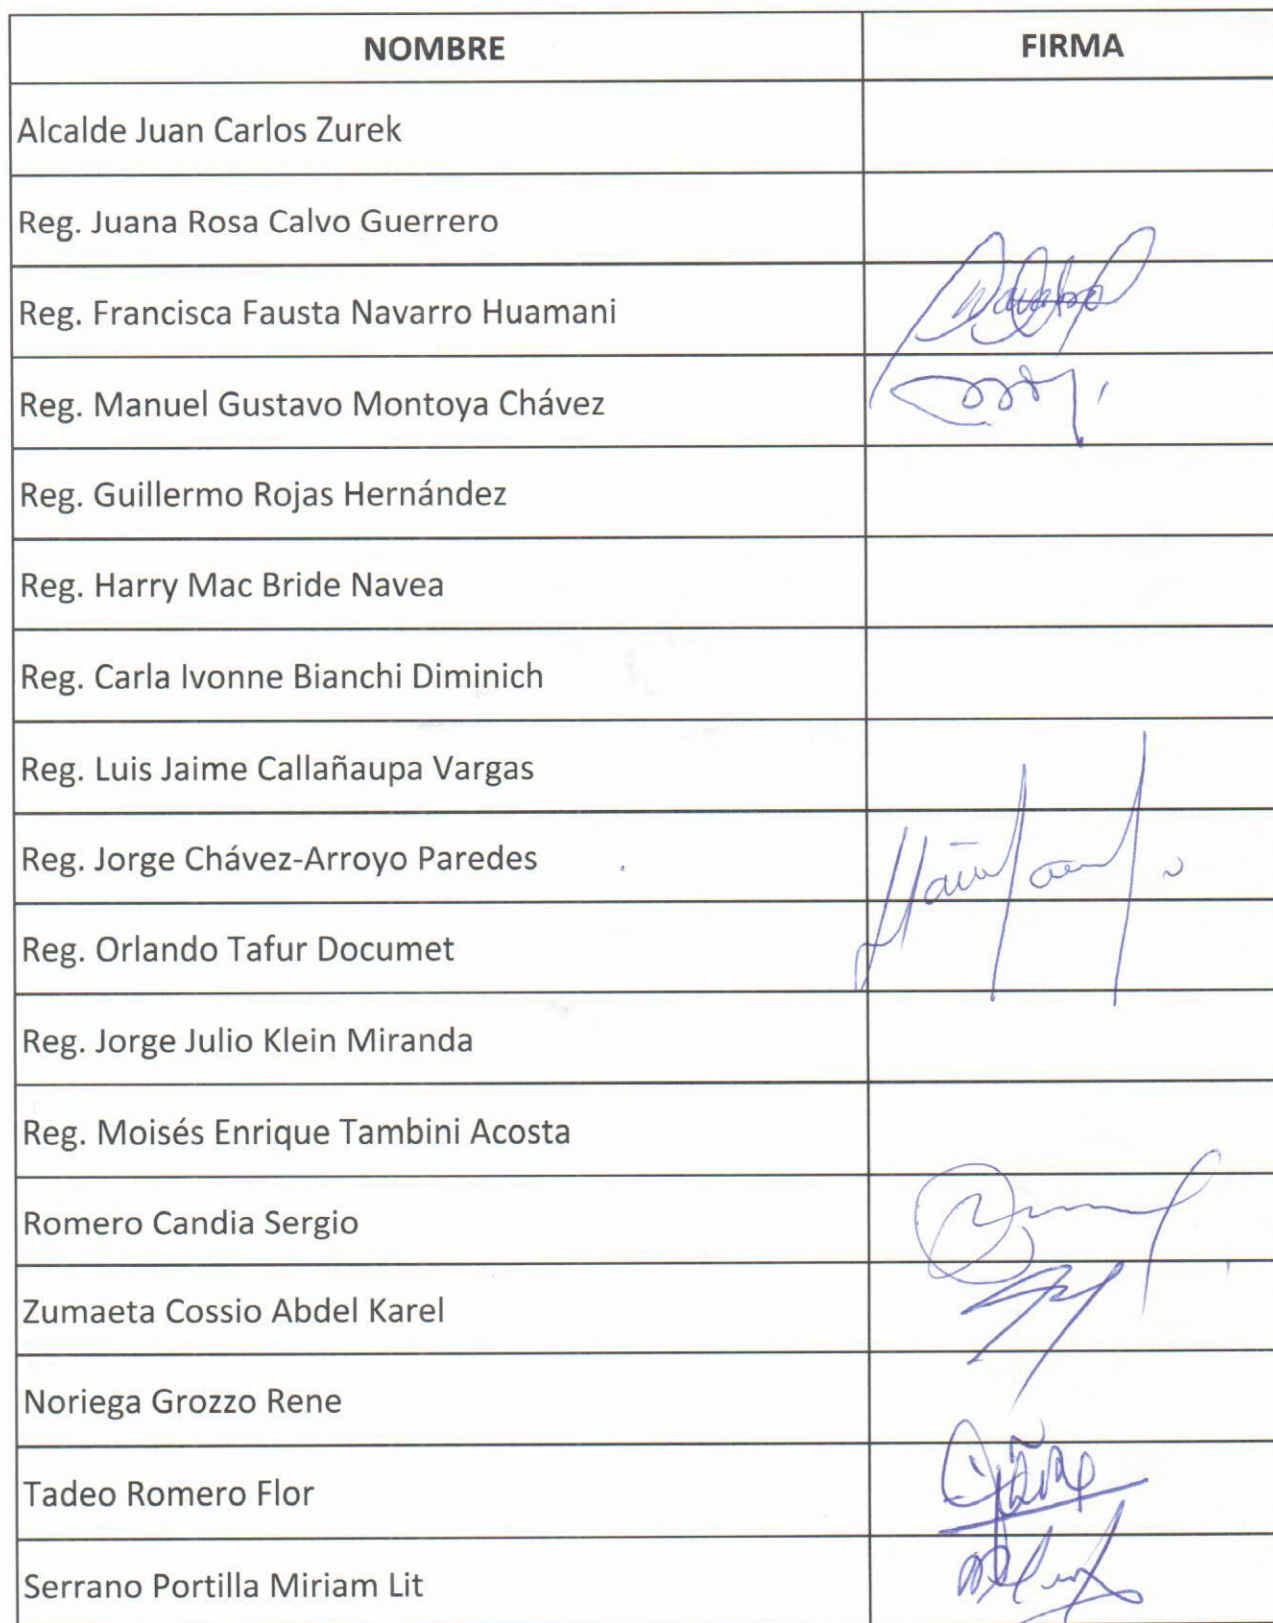 NOMBRE FIRMA
Alcalde Juan Carlos Zurek
Reg. Juana Rosa Calvo Guerrero
Reg. Francisca Fausta Navarro Huamani
Reg. Manuel Gustavo Montoya Chávez
Reg. Guillermo Rojas Hernández
Reg. Harry Mac Bride Navea
Reg. Carla Ivonne Bianchi Diminich
Reg. Luis Jaime Callañaupa Vargas
Reg. Jorge Chávez-Arroyo Paredes
Reg. Orlando Tafur Documet
Reg. Jorge Julio Klein Miranda
Reg. Moisés Enrique Tambini Acosta
Romero Candia Sergio
Zumaeta Cossio Abdel Karel
Noriega Grozzo Rene
Tadeo Romero Flor
Serrano Portilla Miriam Lit